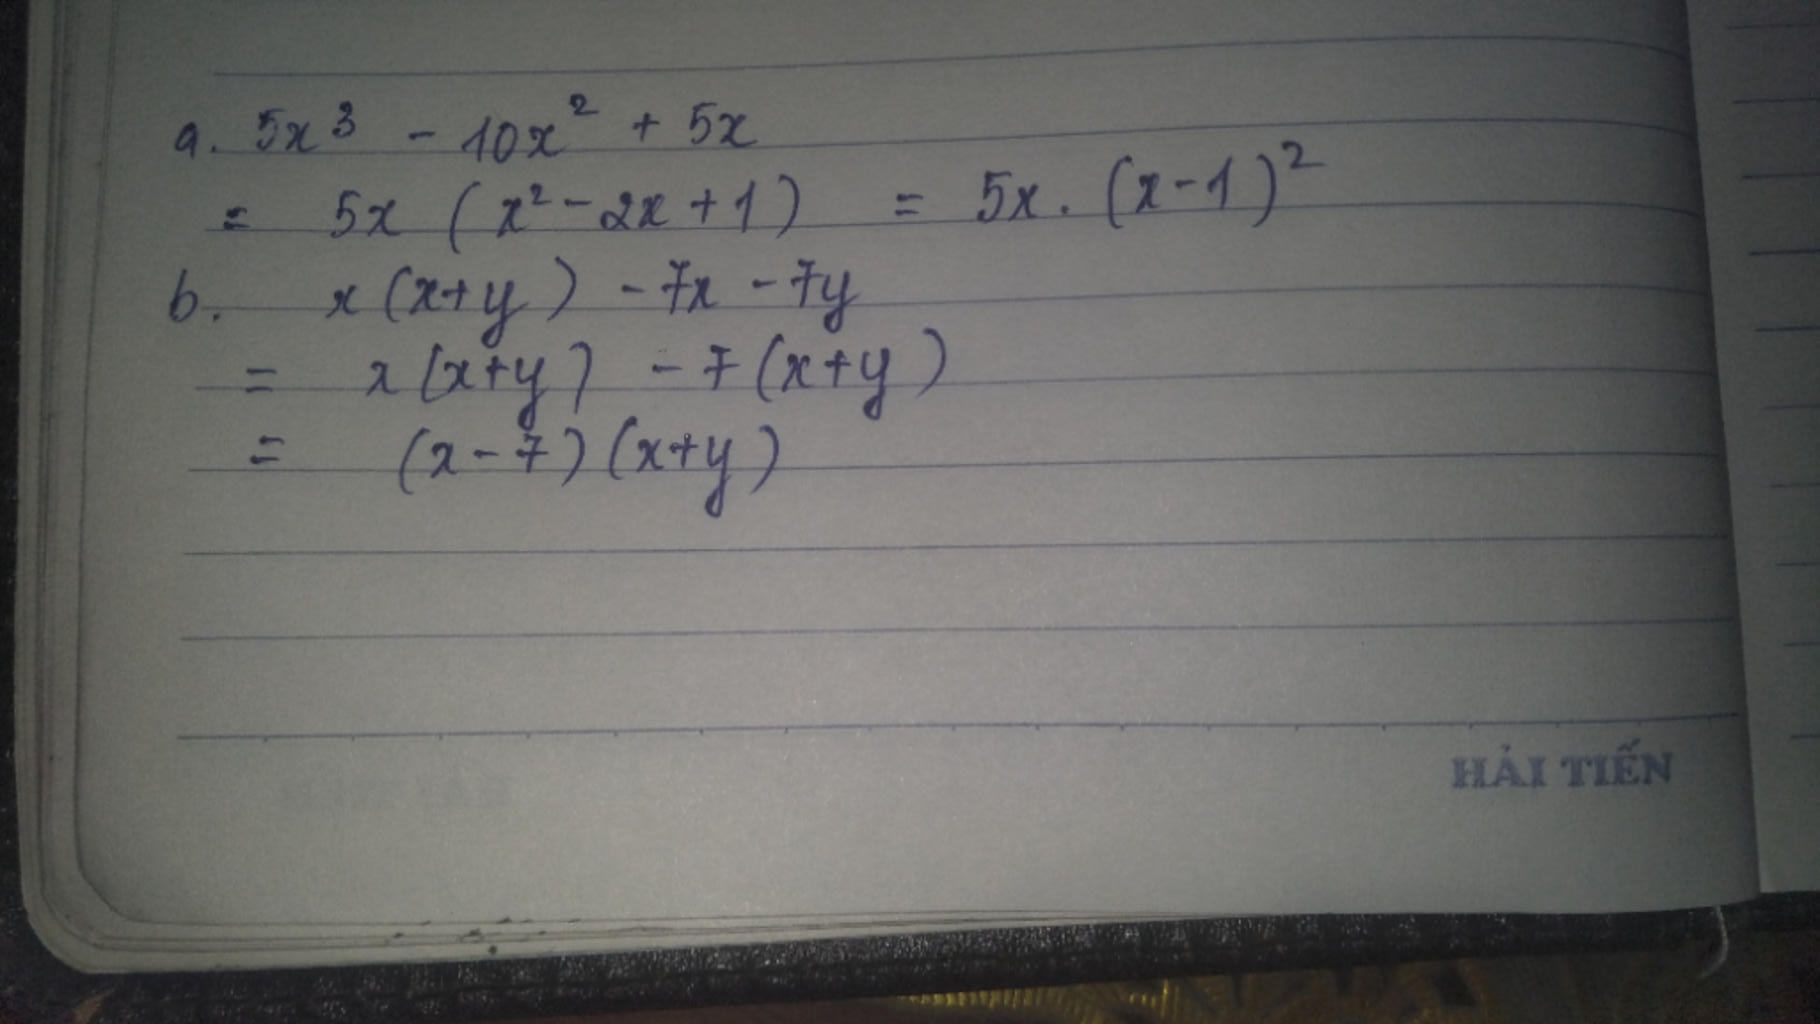 a. 5x³ - 10x² + 5x
= 5x (x² - 2x + 1) = 5x. (x - 1)²
b. x (x+y) - 7x - 7y
= x (x+y) - 7 (x+y)
= (x - 7) (x+y)
HẢI TIẾN